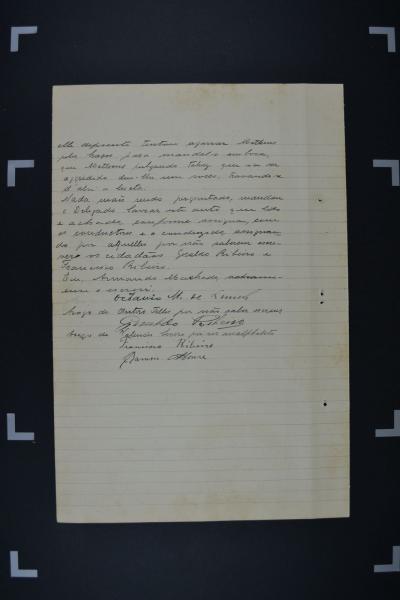 elle depoente tentou agarrar Matheus
pelo braço para mandal-o embora,
que Matheus julgando talvez que ia ser
aggredido deu-lhe um socco, travando-se
d'ahi a lucta.
Nada mais sendo perguntado, mandou
o Delegado lavrar este auto que lido
e achado conforme assigna, com
o conductor e o assignan-
do por aquelles por não saberem escre-
ver os cidadãos Geraldo e
Francisco Ribeiro.
Eu, Armando Machado,
o escrevi.
Octavio M. de Lemos
Arogo de Telles por não saber escrever
Geraldo
Arogo de por ser analphabeto
Francisco Ribeiro
Ramon